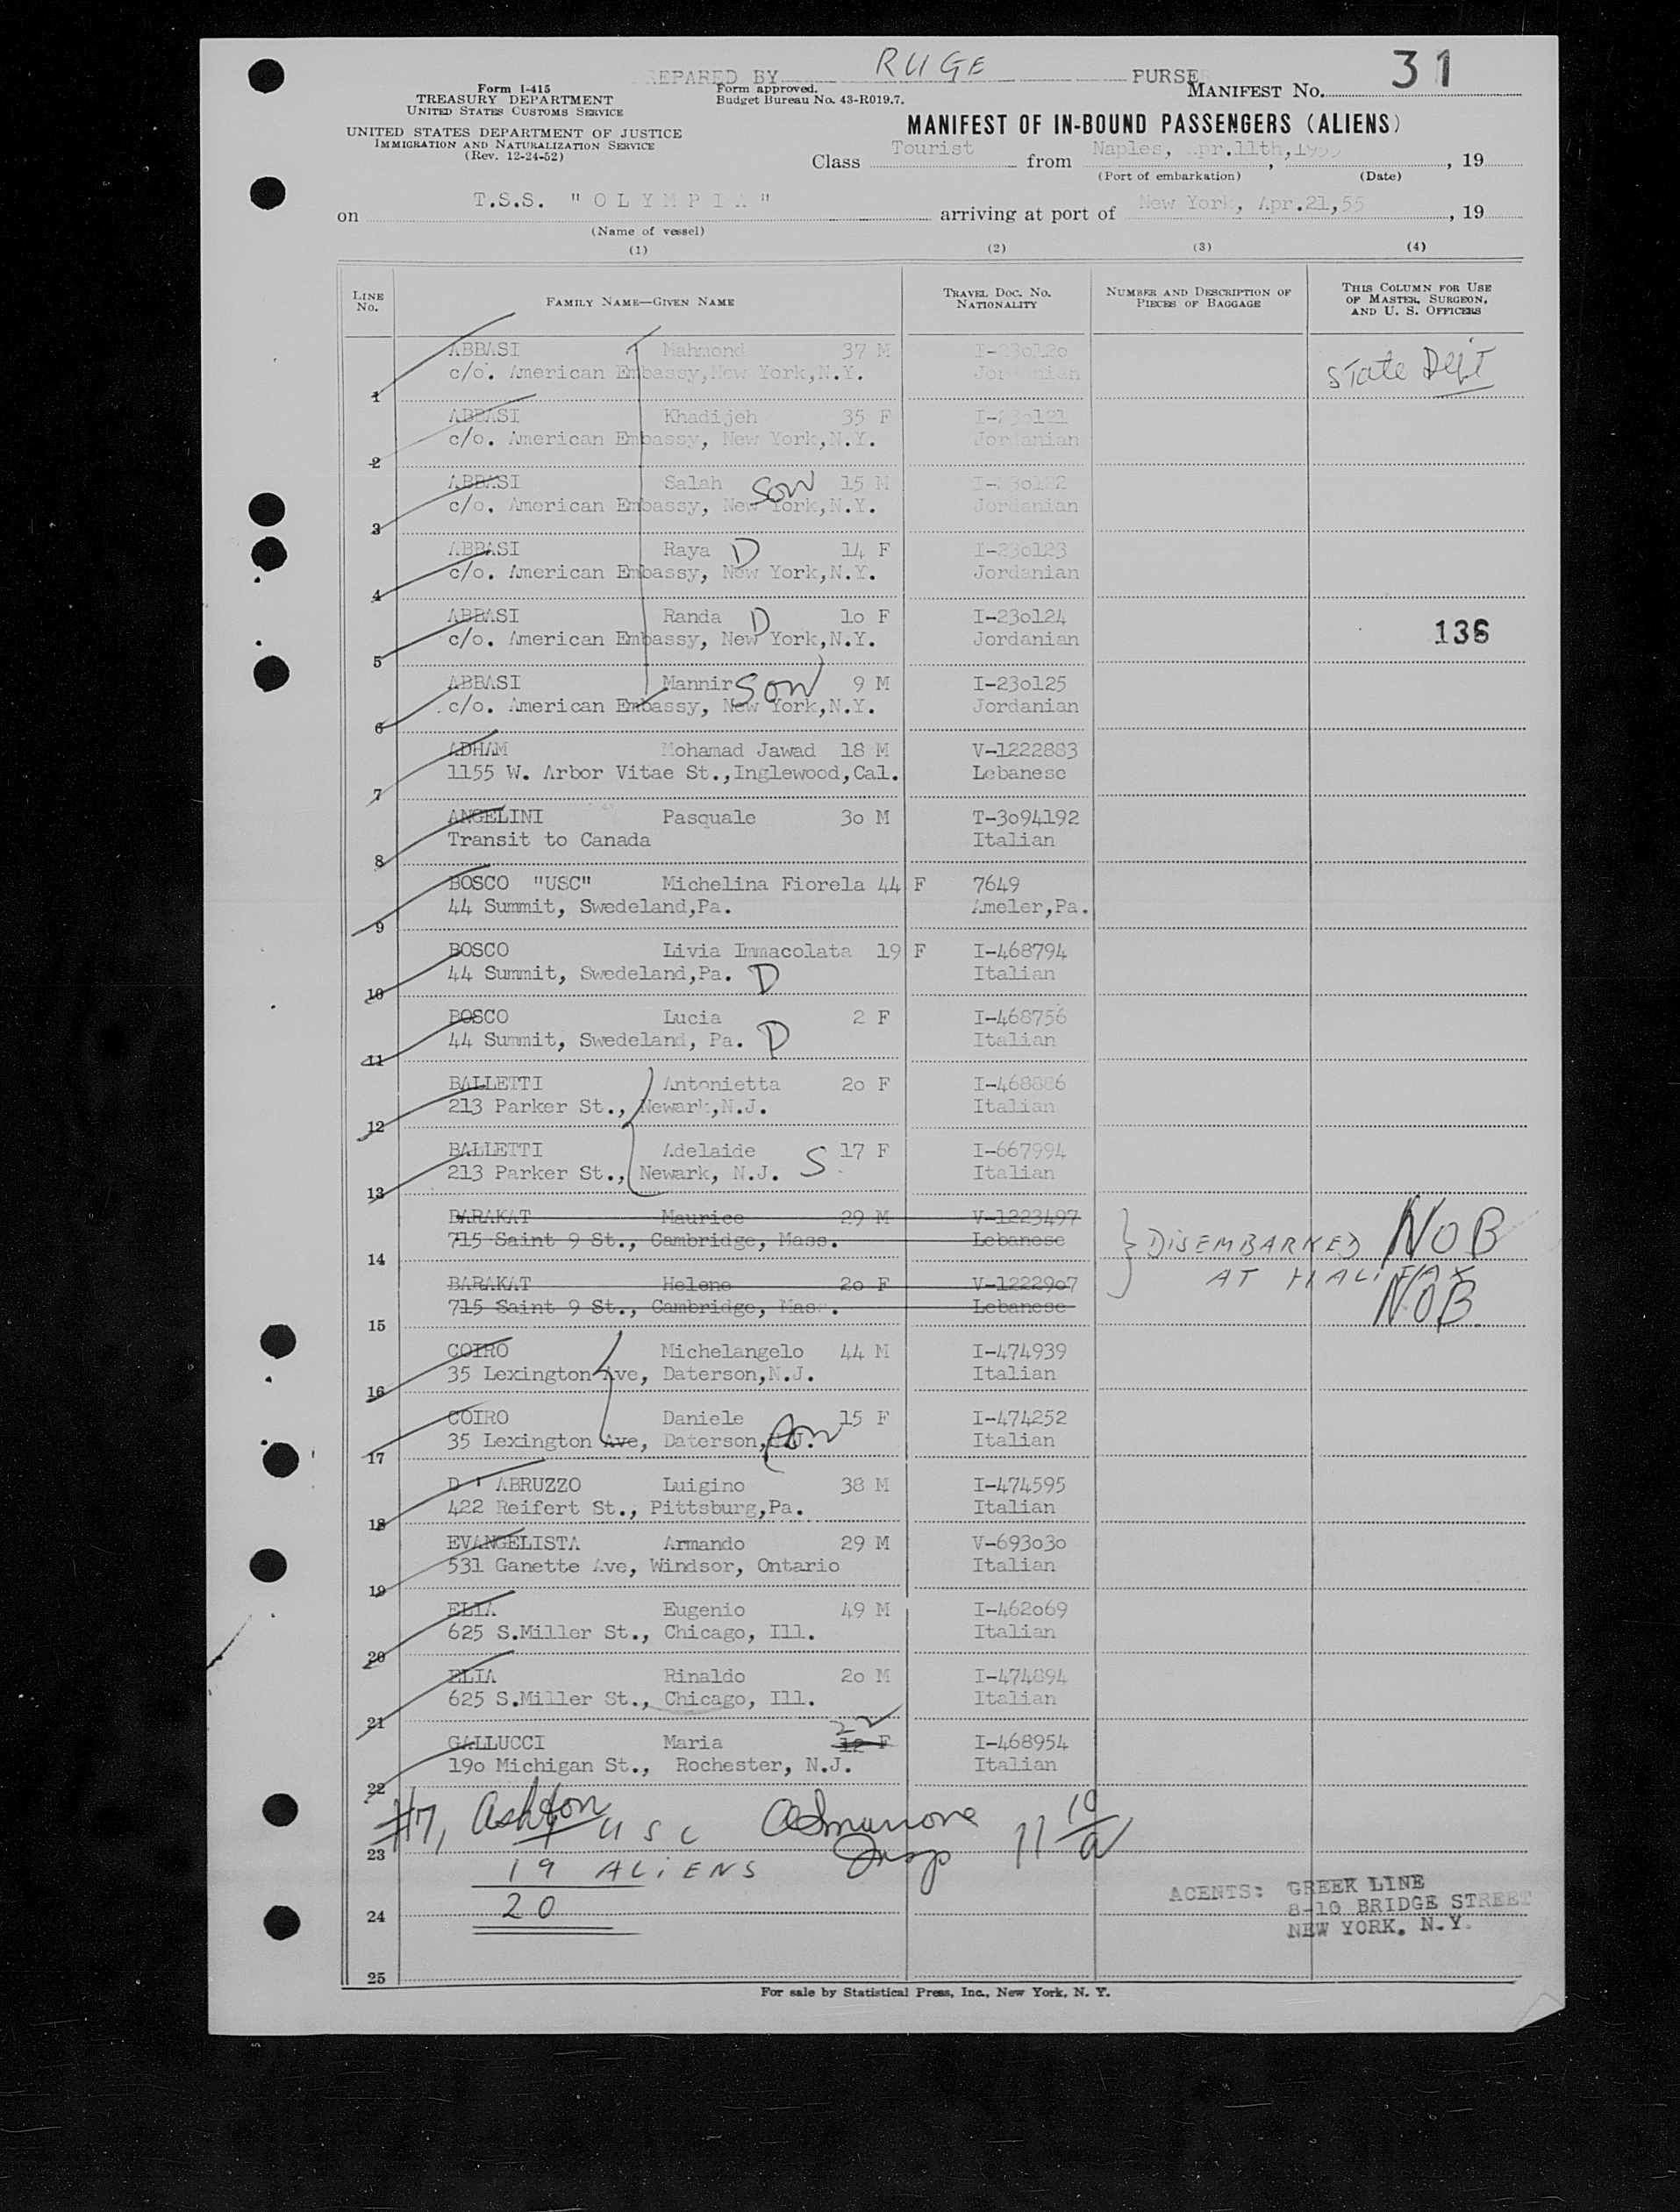 EPARED BY RUGE PURSE
Form I-415
TREASURY DEPARTMENT
UNITED STATES CUSTOMS SERVICE
UNITED STATES DEPARTMENT OF JUSTICE
IMMIGRATION AND NATURALIZATION SERVICE
(Rev. 12-24-52)
Form approved.
Budget Bureau No. 43-R019.7.
MANIFEST NO. 31
MANIFEST OF IN-BOUND PASSENGERS (ALIENS)
Class Tourist from Naples, Apr.11th,1955, 19
(Port of embarkation) (Date)
on T.S.S. "OLYMPIA" arriving at port of New York, Apr.21,55, 19
(Name of vessel)
(1) (2) (3) (4)
LINE NO. FAMILY NAME—GIVEN NAME TRAVEL DOC. NO. NATIONALITY NUMBER AND DESCRIPTION OF PIECES OF BAGGAGE THIS COLUMN FOR USE OF MASTER, SURGEON, AND U. S. OFFICERS
ABBASI Mahmond 37 M I-230120 State Dept
1 c/o. American Embassy,New York,N.Y. Jordanian
ABBASI Khadijeh 35 F I-230121
2 c/o. American Embassy, New York,N.Y. Jordanian
ABBASI Salah son 15 M I-230122
3 c/o. American Embassy, New York,N.Y. Jordanian
ABBASI Raya D 14 F I-230123
4 c/o. American Embassy, New York,N.Y. Jordanian
ABBASI Randa D 10 F I-230124
5 c/o. American Embassy, New York,N.Y. Jordanian 136
ABBASI Mannir son 9 M I-230125
6 c/o. American Embassy, New York,N.Y. Jordanian
ADHAM Mohamad Jawad 18 M V-1222883
7 1155 W. Arbor Vitae St.,Inglewood,Cal. Lebanese
ANGELINI Pasquale 30 M T-3094192
8 Transit to Canada Italian
BOSCO "USC" Michelina Fiorela 44 F 7649
9 44 Summit, Swedeland,Pa. Ameler,Pa.
BOSCO Livia Immacolata 19 F I-468794
10 44 Summit, Swedeland,Pa. D Italian
BOSCO Lucia 2 F I-468756
11 44 Summit, Swedeland, Pa. D Italian
BALLETTI Antonietta 20 F I-468886
12 213 Parker St., Newark,N.J. Italian
BALLETTI Adelaide S 17 F I-667994
13 213 Parker St., Newark, N.J. Italian
BARAKAT Maurice 29 M V-1223497
14 715 Saint 9 St., Cambridge, Mass. Lebanese DISEMBARKED NOB
BARAKAT Helene 20 F V-1222907 AT HALIFAX
15 715 Saint 9 St., Cambridge, Mass. Lebanese NOB
COIRO Michelangelo 44 M I-474939
16 35 Lexington Ave, Daterson,N.J. Italian
COIRO Daniele 15 F I-474252
17 35 Lexington Ave, Daterson,N.J. son Italian
D ' ABRUZZO Luigino 38 M I-474595
18 422 Reifert St., Pittsburg,Pa. Italian
EVANGELISTA Armando 29 M V-693030
19 531 Ganette Ave, Windsor, Ontario Italian
ELIA Eugenio 49 M I-462069
20 625 S.Miller St., Chicago, Ill. Italian
ELIA Rinaldo 20 M I-474894
21 625 S.Miller St., Chicago, Ill. Italian
22
GALLUCCI Maria 12 F I-468954
22 190 Michigan St., Rochester, N.J. Italian
#7, Ashton 1 USC
23
19 ALIENS Insp
24 20
25
AGENTS: GREEK LINE
8-10 BRIDGE STREET
NEW YORK. N.Y.
For sale by Statistical Press, Inc., New York, N. Y.